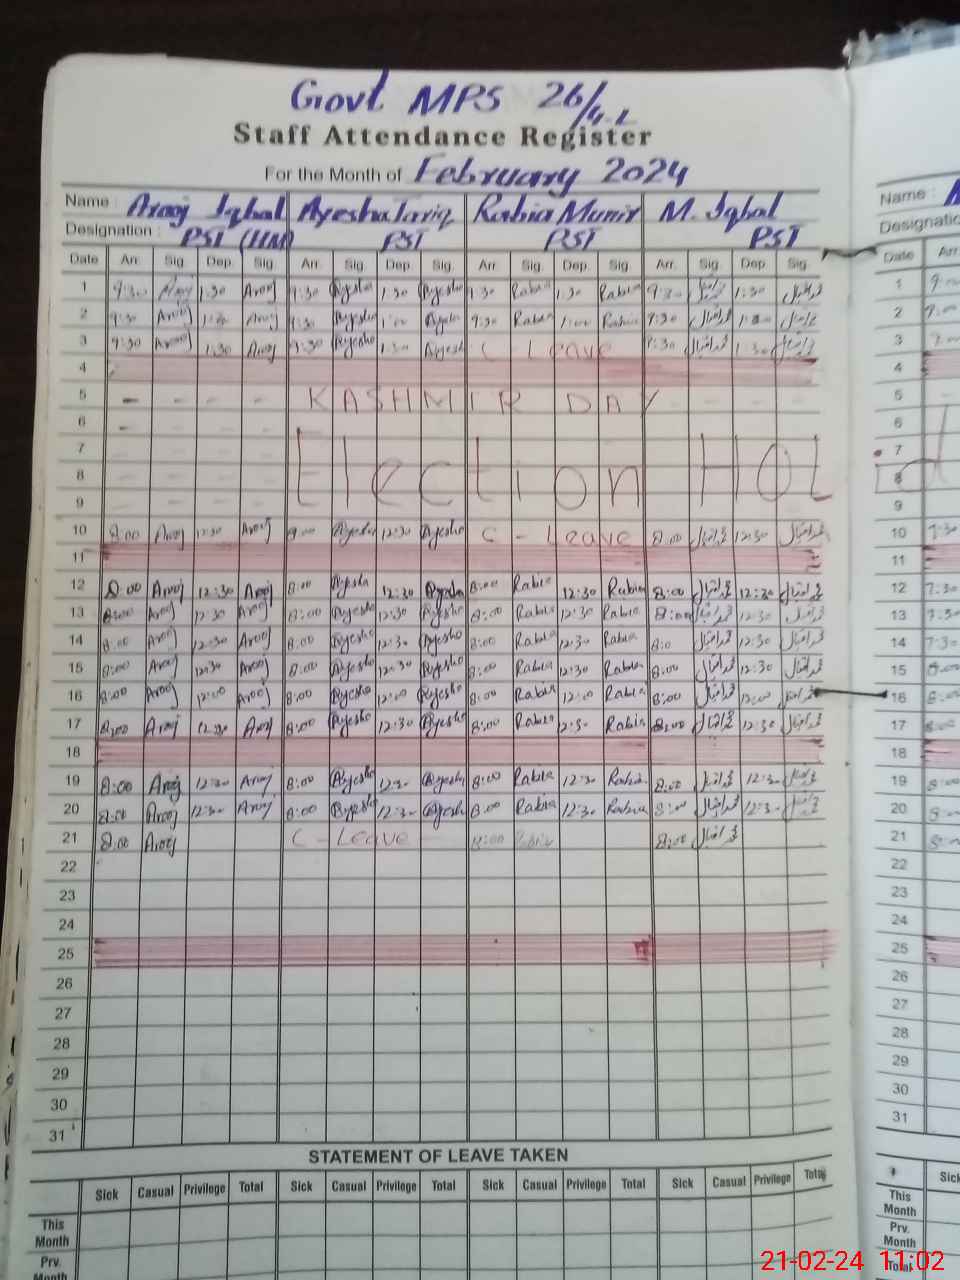 Govt MPS 26/4-L
Staff Attendance Register
For the Month of February 2024
Name : Arooj Iqbal Ayesha Tariq Rabia Munir M. Iqbal
Designation : PST (HM) PST PST PST
Date Arr. Sig. Dep. Sig. Arr. Sig. Dep. Sig. Arr. Sig. Dep. Sig. Arr. Sig. Dep. Sig.
1 9:30 Arooj 1:30 Arooj 9:30 Ayesha 1:30 Ayesha 1:30 Rabia 1:30 Rabia 9:30 محمد اقبال 1:30 محمد اقبال
2 9:30 Arooj Arooj 9:30 Ayesha 1:00 Ayesha 9:30 Rabia 1:00 Rabia 9:30 محمد اقبال محمد اقبال
3 9:30 Arooj 1:30 Arooj 9:30 Ayesha 1:30 Ayesha C - Leave 9:30 محمد اقبال 1:30 محمد اقبال
4
5 KASHMIR DAY
6
7
8 Election Hol
9
10 8:00 Arooj 12:30 Arooj 8:00 Ayesha 12:30 Ayesha C - Leave 8:00 محمد اقبال 12:30 محمد اقبال
11
12 8:00 Arooj 12:30 Arooj 8:00 Ayesha 12:30 Ayesha 8:00 Rabia 12:30 Rabia 8:00 محمد اقبال 12:30 محمد اقبال
13 8:00 Arooj 12:30 Arooj 8:00 Ayesha 12:30 Ayesha 8:00 Rabia 12:30 Rabia 8:00 محمد اقبال 12:30 محمد اقبال
14 8:00 Arooj 12:30 Arooj 8:00 Ayesha 12:30 Ayesha 8:00 Rabia 12:30 Rabia 8:0 محمد اقبال 12:30 محمد اقبال
15 8:00 Arooj 12:30 Arooj 8:00 Ayesha 12:30 Ayesha 8:00 Rabia 12:30 Rabia 8:00 محمد اقبال 12:30 محمد اقبال
16 8:00 Arooj 12:00 Arooj 8:00 Ayesha 12:00 Ayesha 8:00 Rabia 12:00 Rabia 8:00 محمد اقبال 12:00 محمد اقبال
17 8:00 Arooj 12:30 Arooj 8:00 Ayesha 12:30 Ayesha 8:00 Rabia 12:30 Rabia 8:00 محمد اقبال 12:30 محمد اقبال
18
19 8:00 Arooj 12:30 Arooj 8:00 Ayesha 12:30 Ayesha 8:00 Rabia 12:30 Rabia 8:00 محمد اقبال 12:30 محمد اقبال
20 8:00 Arooj 12:30 Arooj 8:00 Ayesha 12:30 Ayesha 8:00 Rabia 12:30 Rabia 8:00 محمد اقبال 12:30 محمد اقبال
21 8:00 Arooj C - Leave 8:00 Rabia 8:00 محمد اقبال
22
23
24
25
26
27
28
29
30
31
STATEMENT OF LEAVE TAKEN
Sick Casual Privilege Total Sick Casual Privilege Total Sick Casual Privilege Total Sick Casual Privilege Total
This Month
Prv. Month
Name :
Designatio
Date Arr.
1 9:00
2 9:00
3
4
5
6
7
8
9
10 7:30
11
12 7:30
13 7:30
14 7:30
15 8:00
16 8:00
17 8:00
18
19 8:00
20 8:00
21 8:00
22
23
24
25
26
27
28
29
30
31
Sick
This Month
Prv. Month
Total
21-02-24 11:02